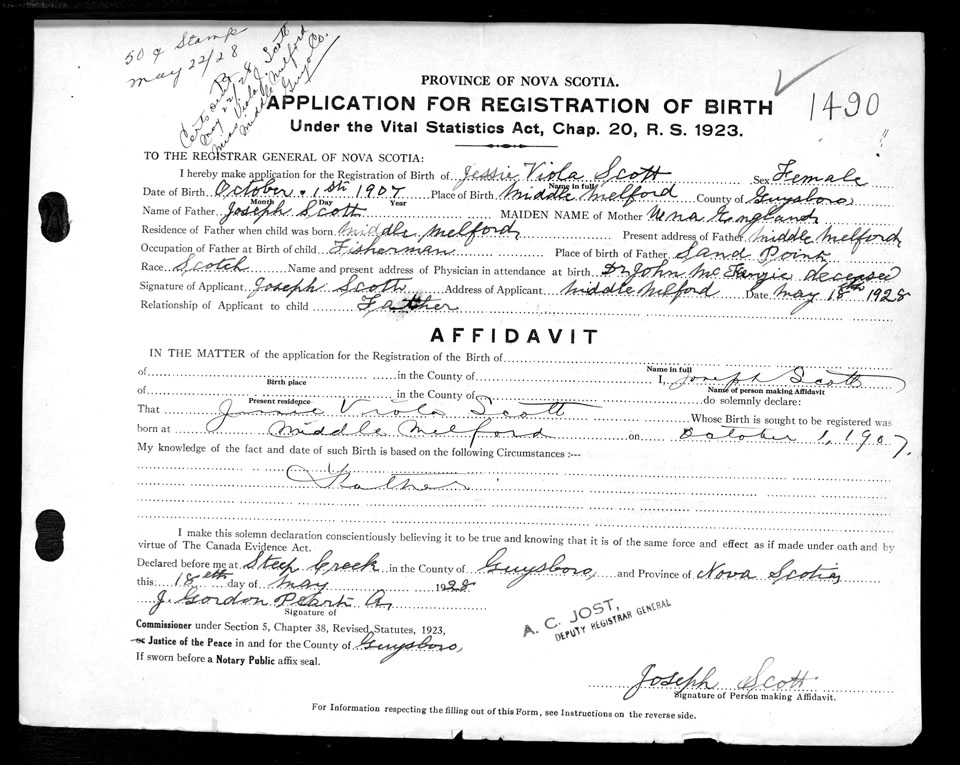 50 ¢ Stamp
May 22/28
Cert sent To
May 22/28
Miss Viola J. Scott
Middle Melford
Guys Co.
PROVINCE OF NOVA SCOTIA.
APPLICATION FOR REGISTRATION OF BIRTH
1490
Under the Vital Statistics Act, Chap. 20, R. S. 1923.
TO THE REGISTRAR GENERAL OF NOVA SCOTIA:
I hereby make application for the Registration of Birth of Jessie Viola Scott Sex Female
Name in full
Date of Birth October 1st 1907 Place of Birth Middle Melford County of Guysboro
Month Day Year
Name of Father Joseph Scott MAIDEN NAME of Mother Nena England
Residence of Father when child was born Middle Melford Present address of Father Middle Melford
Occupation of Father at Birth of child Fisherman Place of birth of Father Sand Point
Race Scotch Name and present address of Physician in attendance at birth Dr John Mc deceased
Signature of Applicant Joseph Scott Address of Applicant Middle Melford Date May 18th 1928
Relationship of Applicant to child Father
AFFIDAVIT
IN THE MATTER of the application for the Registration of the Birth of
Name in full
of in the County of I, Joseph Scott
Birth place Name of person making Affidavit
of in the County of do solemnly declare:
Present residence
That Viola Scott Whose Birth is sought to be registered was
born at Middle Melford on October 1, 1907.
My knowledge of the fact and date of such Birth is based on the following Circumstances :---
Father
I make this solemn declaration conscientiously believing it to be true and knowing that it is of the same force and effect as if made under oath and by
virtue of The Canada Evidence Act.
Declared before me at Steep Creek in the County of Guysboro, and Province of Nova Scotia
this 18eth day of May 1928
J. Gordon
Signature of
A. C. JOST,
DEPUTY REGISTRAR GENERAL
Commissioner under Section 5, Chapter 38, Revised Statutes, 1923,
or Justice of the Peace in and for the County of Guysboro,
If sworn before a Notary Public affix seal.
Joseph Scott
Signature of Person making Affidavit.
For Information respecting the filling out of this Form, see Instructions on the reverse side.